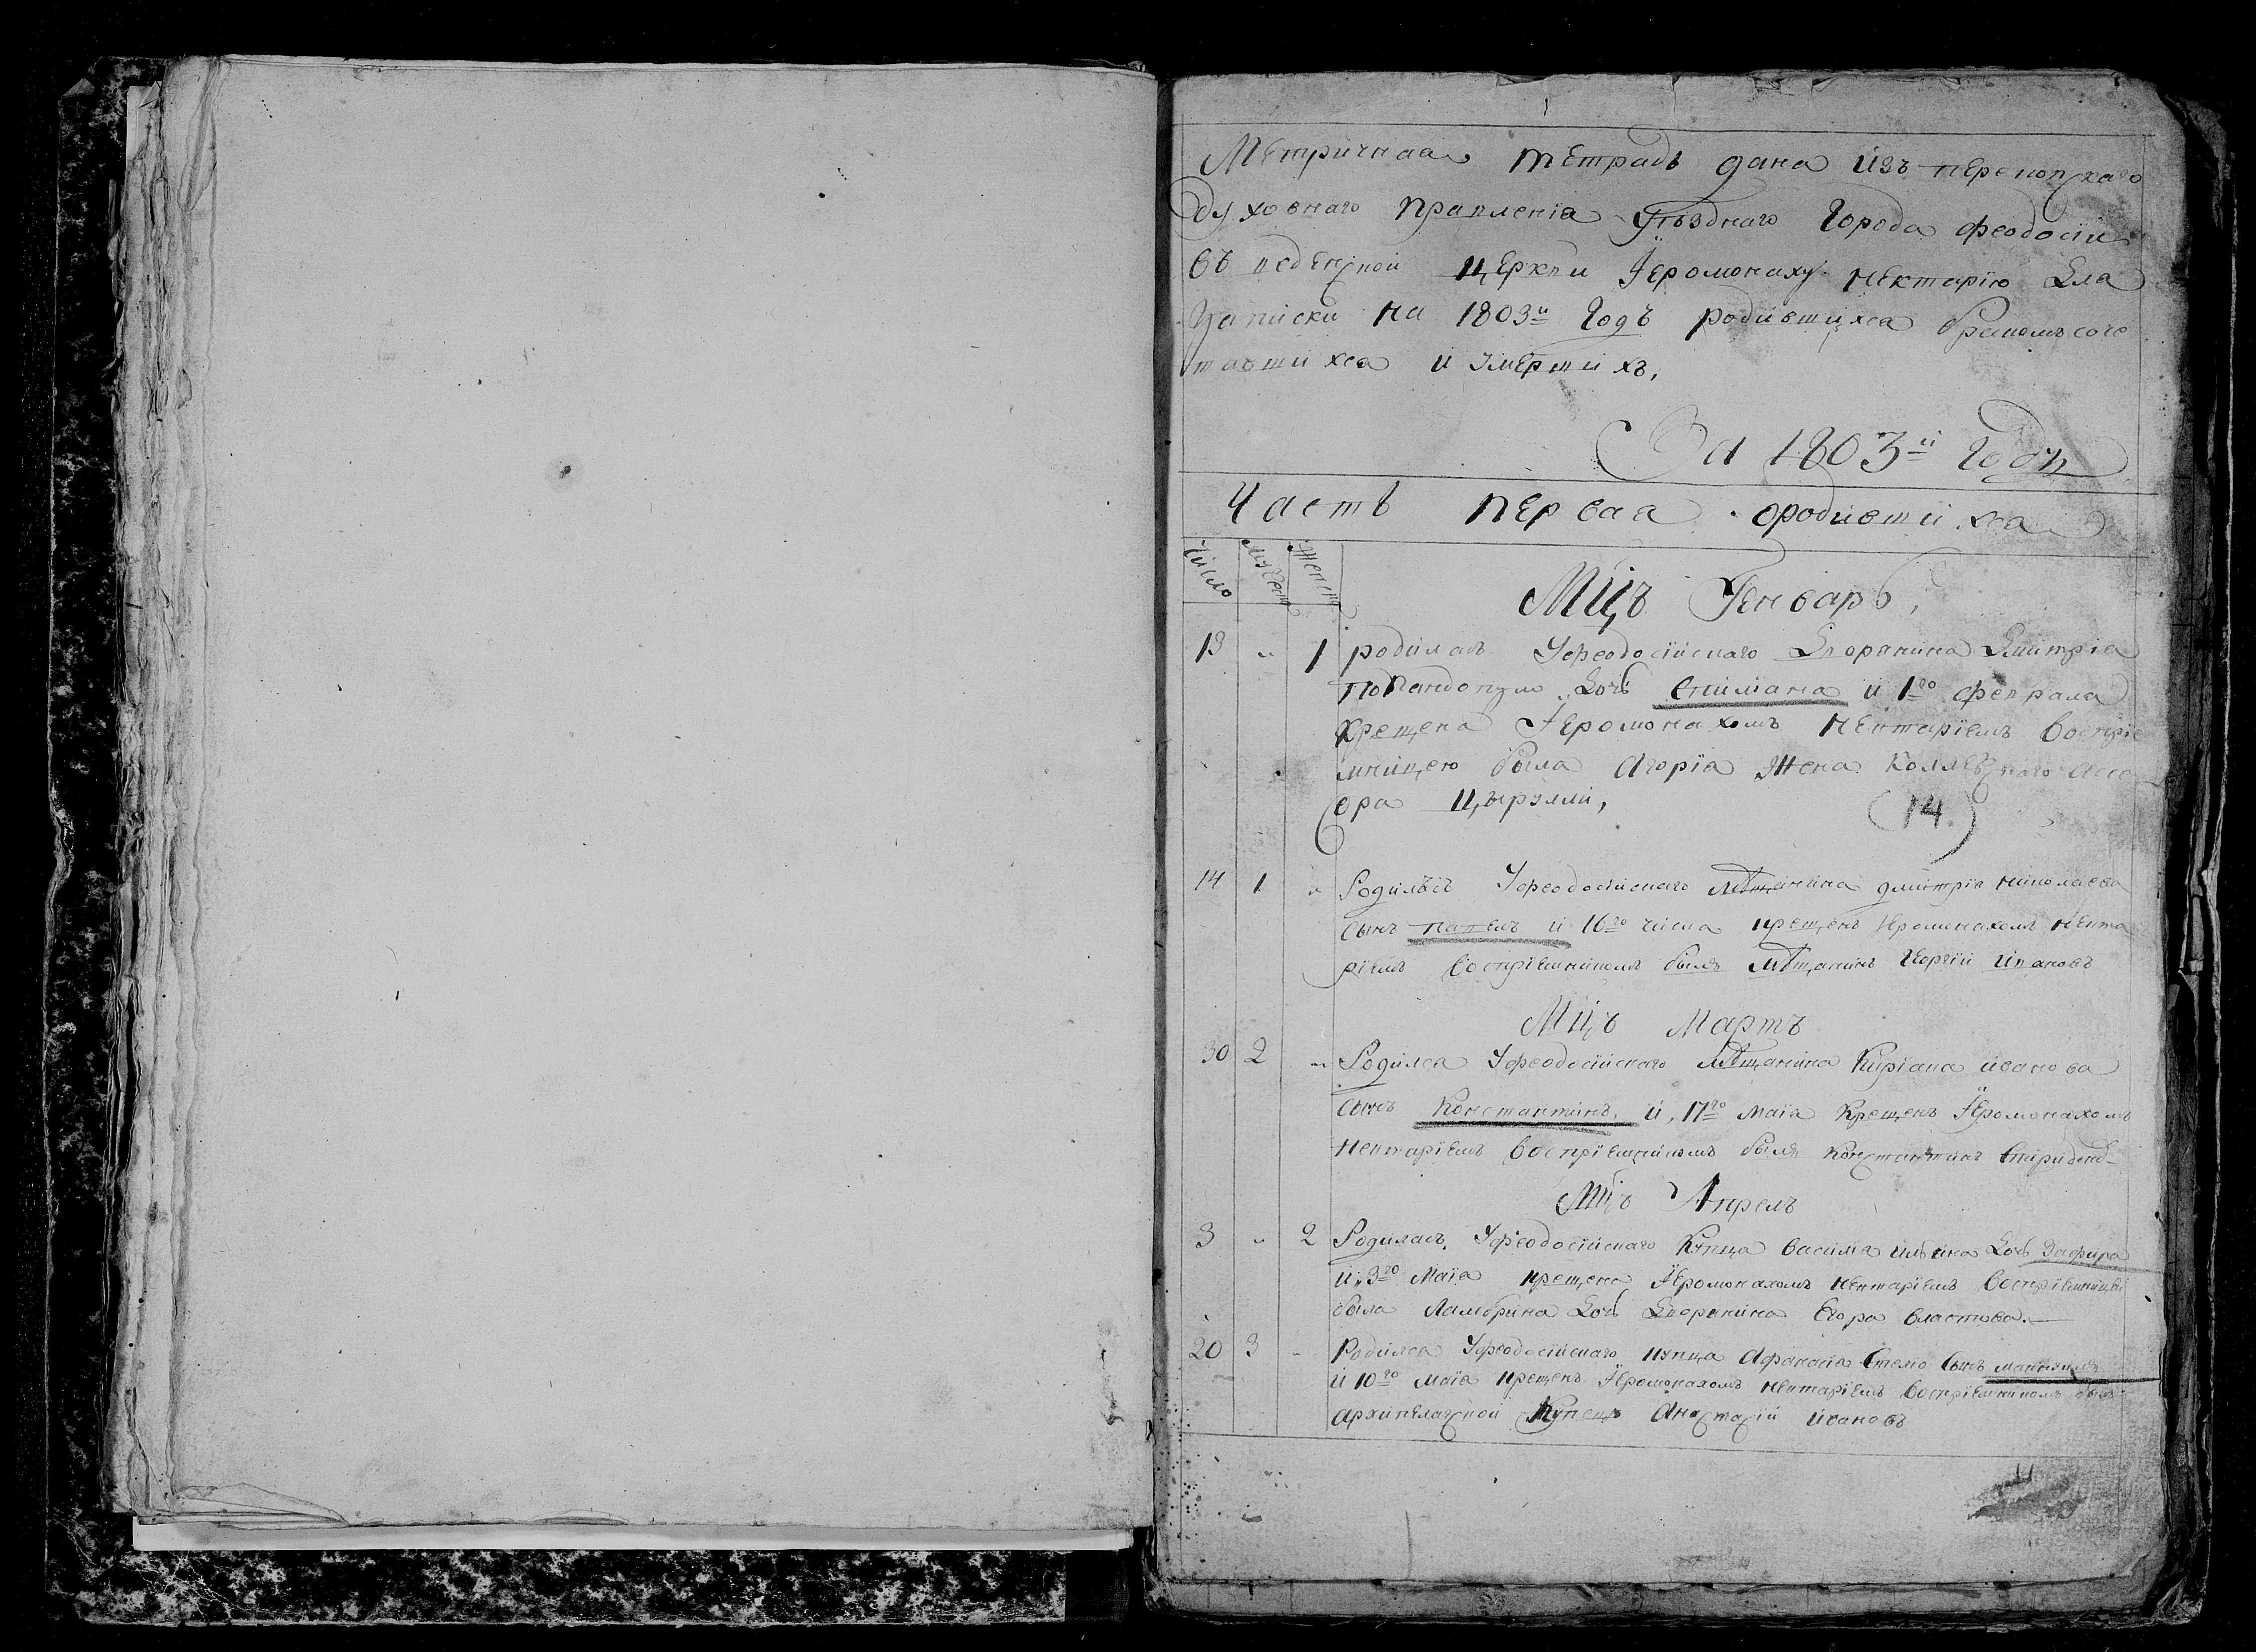 Метричная тетрадь дана изъ перекопскаго
Духовнаго правленiя Уѣзднаго Города Феодосiи
въ Церкви Iеромонаху Нектарiю Для
Записки на 1803й Годъ родившихся бракомъ соче
тавшихся и умершихъ,
За 1803й Годъ
Часть первая о родившихся
Число Мужеск Женск
Мцъ Генварь,
13 „ 1 родилась У феодосiйскаго Дворянина Дмитрiя
Попандопуло Дочь и 1го февраля
крещена Iеромонахомъ Нектарiемъ воспрiе
мницею была Агорiа Жена Коллежскаго Ассе
сора Цырули,
(14.)
14 1 „ Родилъся У феодосiйскаго мѣщанина дмитрiя николаева
сынъ павелъ и 16го числа крещенъ Iеромонахомъ Некта
рiемъ воспрiемникомъ былъ мѣщанинъ Георгiй Ивановъ
Мцъ Мартъ
30 2 „ Родился У феодосiйскаго мѣщанина Кирiана иванова
сынъ Константинъ, и, 17го маiя Крещенъ Iеромонахомъ
Нектарiемъ воспрiемникомъ былъ Константинъ
Мцъ Апрель
3 „ 2 Родилась У феодосiйскаго Купца василiя ильина Дочь Зафира
и, 3го маiя крещена Iеромонахомъ Нектарiемъ воспрiемницей
была Ламбрина Дочь Дворянина Егора властова.
20 3 „ Родился У феодосiйскаго купца Афанасiя Стелiо сынъ мануилъ
и 10го маiя крещенъ Iеромонахомъ нектарiемъ воспрiемникомъ былъ
архипелагской Купецъ Анастасiй ивановъ